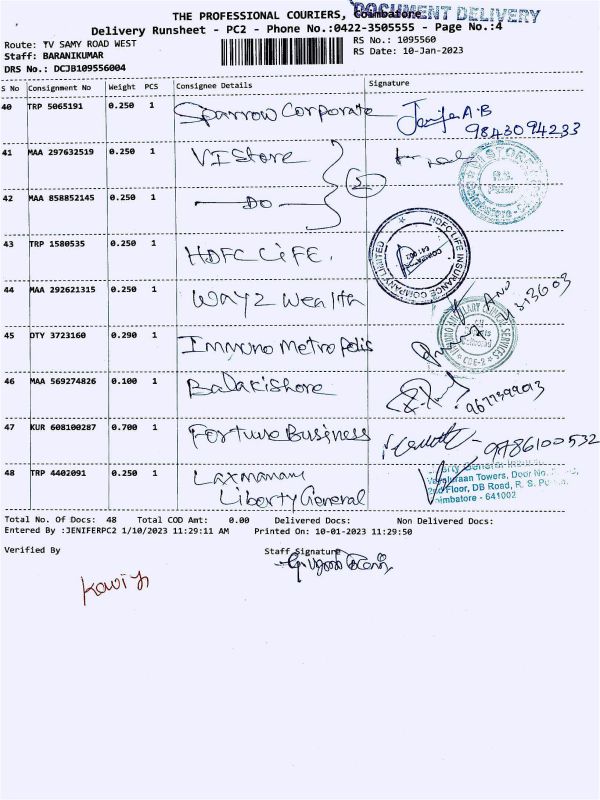 THE PROFESSIONAL COURIERS, Coimbatore
DOCUMENT DELIVERY
Delivery Runsheet - PC2 - Phone No.:0422-3505555 - Page No.:4
Route: TV SAMY ROAD WEST
RS No.: 1095560
Staff: BARANIKUMAR
RS Date: 10-Jan-2023
DRS No.: DCJB109556004
S No Consignment No Weight PCS Consignee Details Signature
40 TRP 5065191 0.250 1 Sparrow Corporate Jenifer A.B
9843094233
41 MAA 297632519 0.250 1 VI Store
42 MAA 858852145 0.250 1 DO 2
43 TRP 1580535 0.250 1 HDFC LiFE.
HDFC LIFE INSURANCE COMPANY LIMITED
641 002
44 MAA 292621315 0.250 1 Way2 Wealth
45 DTY 3723160 0.290 1 Immuno Metropolis
CBE-2
46 MAA 569274826 0.100 1 Balakishore
47 KUR 608100287 0.700 1 Fortune Business 9786100532
48 TRP 4402091 0.250 1 Laxmanan
Liberty General
Liberty General
Towers, Door No.
2nd Floor, DB Road, R. S. Puram,
Coimbatore - 641002
Total No. Of Docs: 48 Total COD Amt: 0.00 Delivered Docs: Non Delivered Docs:
Entered By :JENIFERPC2 1/10/2023 11:29:11 AM Printed On: 10-01-2023 11:29:50
Verified By Staff Signature